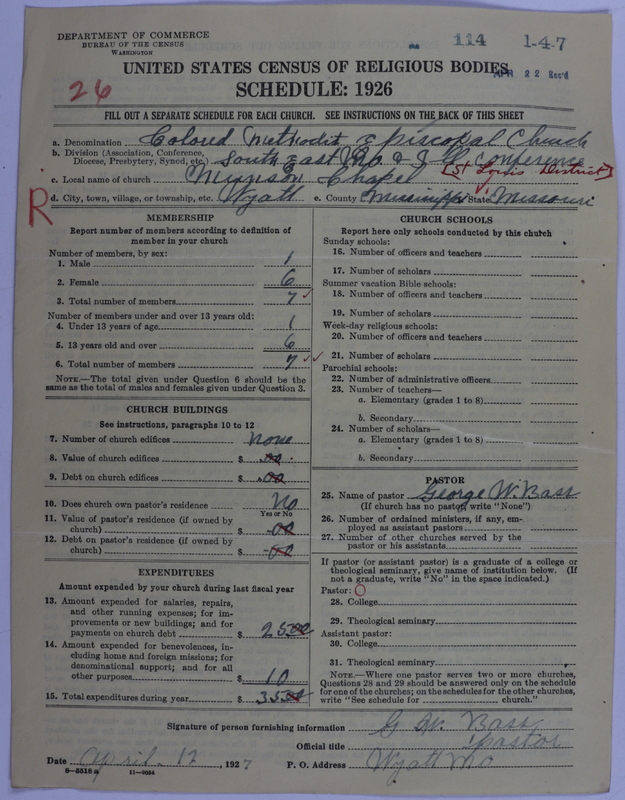 DEPARTMENT OF COMMERCE
BUREAU OF THE CENSUS
WASHINGTON
114 1-4-7
APR 22 Rec'd
UNITED STATES CENSUS OF RELIGIOUS BODIES
SCHEDULE: 1926
26
FILL OUT A SEPARATE SCHEDULE FOR EACH CHURCH. SEE INSTRUCTIONS ON THE BACK OF THIS SHEET
a. Denomination Colored Methodist Episcopal Church
b. Division (Association, Conference, Diocese, Presbytery, Synod, etc.) South east Mo. & Ill Conference
c. Local name of church Munson Chapel [St Louis District]
R
d. City, town, village, or township, etc. Wyatt e. County Mississippi State Missouri
MEMBERSHIP
Report number of members according to definition of
member in your church
Number of members, by sex:
1. Male 1
2. Female 6
3. Total number of members 7 ✓
Number of members under and over 13 years old:
4. Under 13 years of age 1
5. 13 years old and over 6
6. Total number of members 7 ✓✓
NOTE.—The total given under Question 6 should be the
same as the total of males and females given under Question 3.
CHURCH BUILDINGS
See instructions, paragraphs 10 to 12
7. Number of church edifices none
8. Value of church edifices $ .00
9. Debt on church edifices $ .00
10. Does church own pastor's residence No
Yes or No
11. Value of pastor's residence (if owned by
church) $ -00
12. Debt on pastor's residence (if owned by
church) $ -00
EXPENDITURES
Amount expended by your church during last fiscal year
13. Amount expended for salaries, repairs,
and other running expenses; for im-
provements or new buildings; and for
payments on church debt $ 25 00
14. Amount expended for benevolences, in-
cluding home and foreign missions; for
denominational support; and for all
other purposes $ 10
15. Total expenditures during year $ 35 00
CHURCH SCHOOLS
Report here only schools conducted by this church
Sunday schools:
16. Number of officers and teachers
17. Number of scholars
Summer vacation Bible schools:
18. Number of officers and teachers
19. Number of scholars
Week-day religious schools:
20. Number of officers and teachers
21. Number of scholars
Parochial schools:
22. Number of administrative officers
23. Number of teachers—
a. Elementary (grades 1 to 8)
b. Secondary
24. Number of scholars—
a. Elementary (grades 1 to 8)
b. Secondary
PASTOR
25. Name of pastor George W. Bass
(If church has no pastor, write "None")
26. Number of ordained ministers, if any, em-
ployed as assistant pastors
27. Number of other churches served by the
pastor or his assistants
If pastor (or assistant pastor) is a graduate of a college or
theological seminary, give name of institution below. (If
not a graduate, write "No" in the space indicated.)
Pastor: O
28. College
29. Theological seminary
Assistant pastor:
30. College
31. Theological seminary
NOTE.—Where one pastor serves two or more churches,
Questions 28 and 29 should be answered only on the schedule
for one of the churches; on the schedules for the other churches,
write "See schedule for church."
Signature of person furnishing information G. W. Bass
Official title pastor
Date April 12, 1927 P. O. Address Wyatt Mo
8—5518a 11—9054